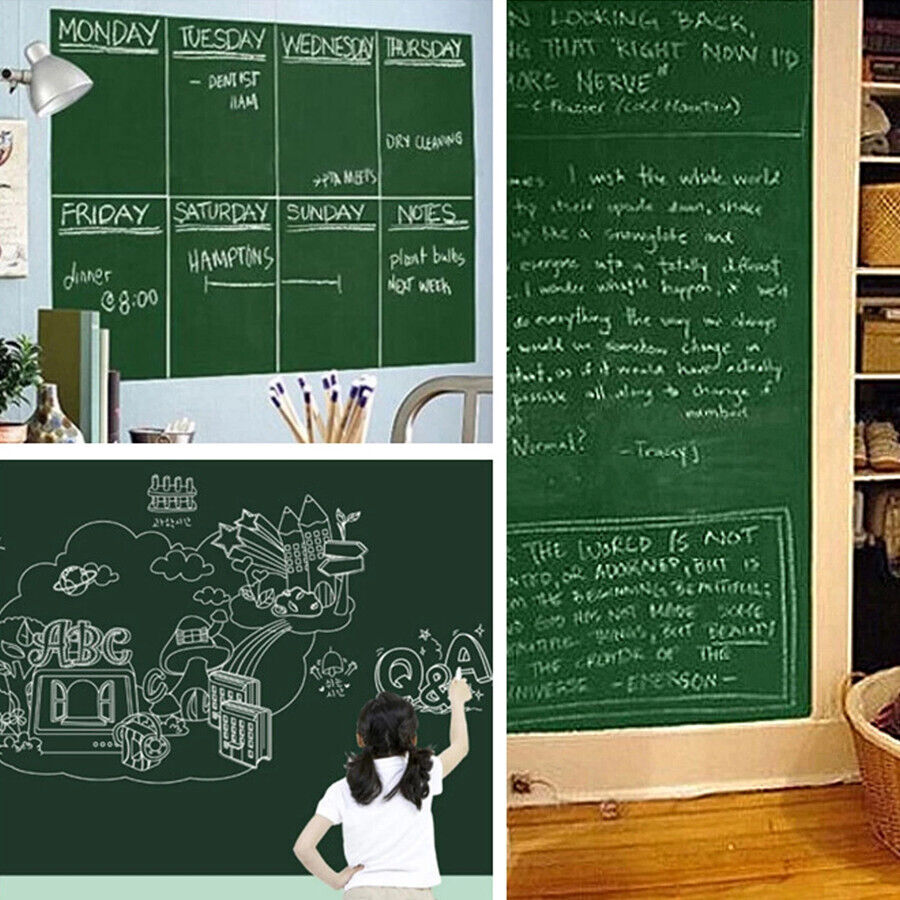 MONDAY
TUESDAY
- DENTIST
11AM
WEDNESDAY
→PTA MEETS
THURSDAY
DRY CLEANING
FRIDAY
dinner
@8:00
SATURDAY
HAMPTONS
SUNDAY
NOTES
plant bulbs
NEXT WEEK
N LOOKING BACK,
NG THAT RIGHT NOW I'D
MORE NERVE"
- C. Frazier (Cold Mountain)
I wish the whole world
itself upside down, shake
up like a snowglobe and
everyone into a totally different
I wonder what'd happen, if we'd
do everything the way we always
would we somehow change in
as if it would have actually
possible all along to change
Normal?
- Tracy J
THE WORLD IS NOT
OR ADORNED, BUT IS
THE BEGINNING BEAUTIFUL;
GOD HAS NOT MADE SOME
THINGS, BUT BEAUTY
THE CREATOR OF THE
UNIVERSE - EMERSON -
ABC
Q&A